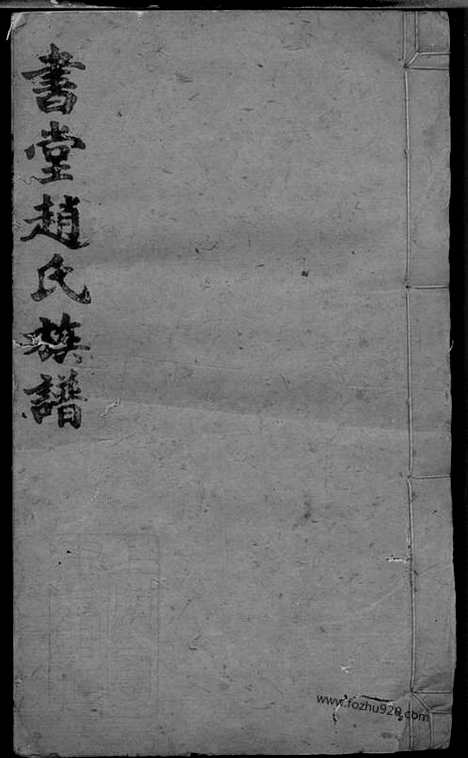 書堂趙氏族譜
www.fozhu920.com